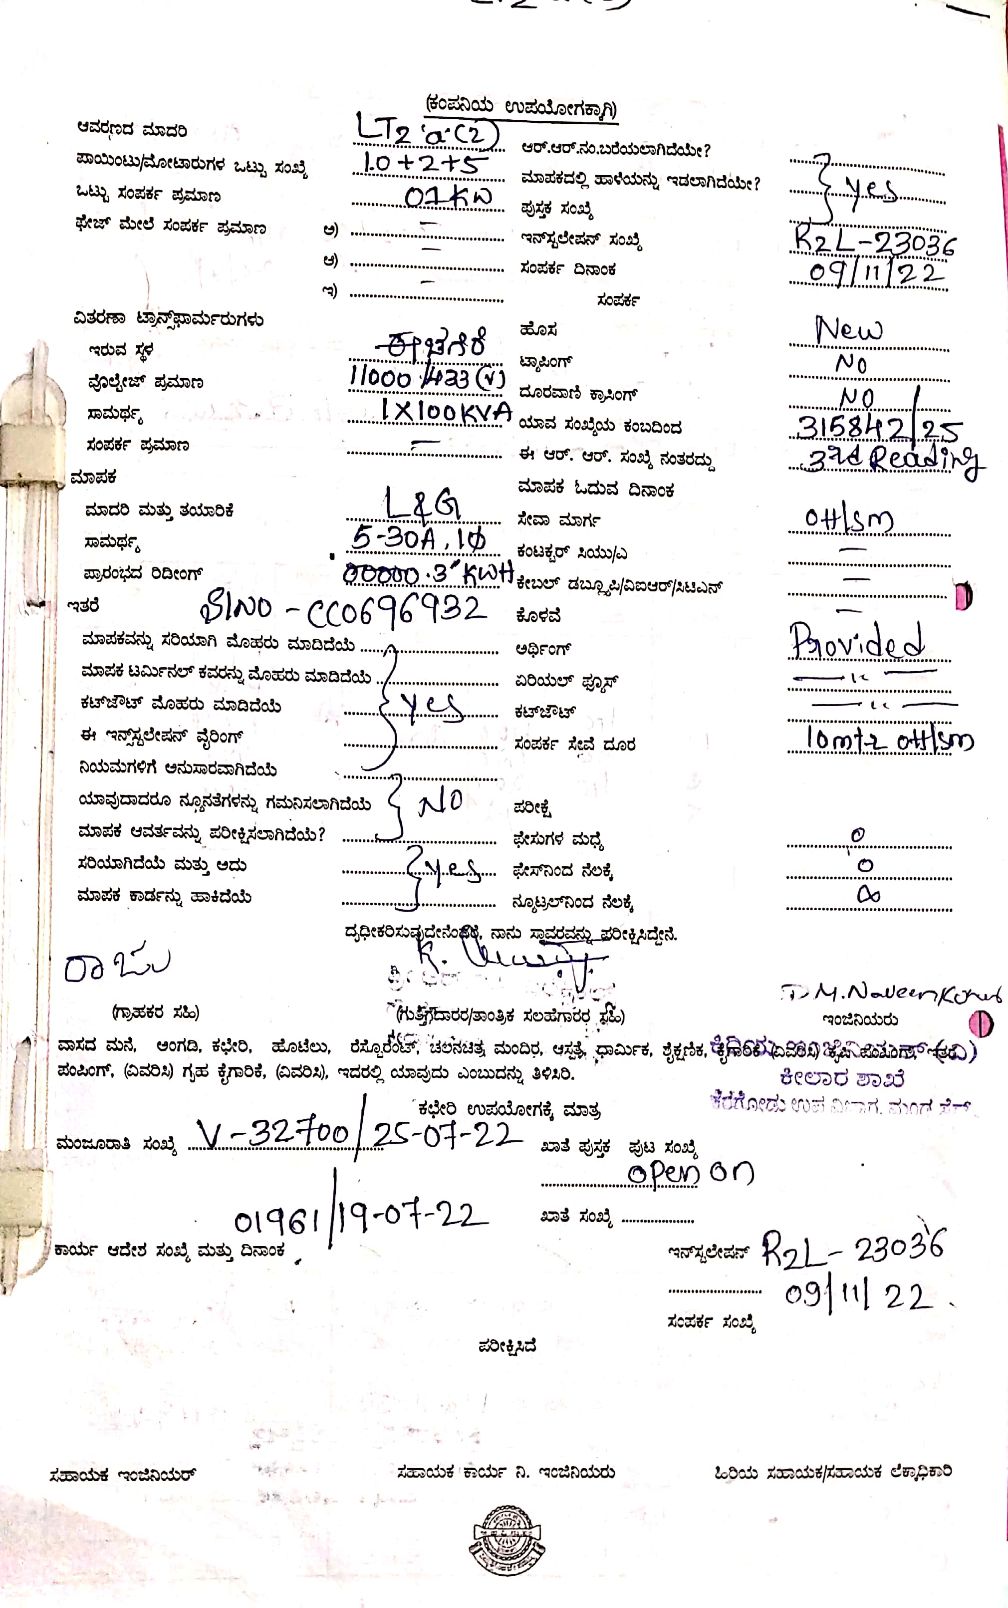 (ಕಂಪನಿಯ ಉಪಯೋಗಕ್ಕಾಗಿ)
ಆವರಣದ ಮಾದರಿ LT2 'a' (2) ಆರ್.ಆರ್.ನಂ.ಬರೆಯಲಾಗಿದೆಯೇ?
ಪಾಯಿಂಟು/ಮೋಟಾರುಗಳ ಒಟ್ಟು ಸಂಖ್ಯೆ 10+2+5 ಮಾಪಕದಲ್ಲಿ ಹಾಳೆಯನ್ನು ಇಡಲಾಗಿದೆಯೇ? yes
ಒಟ್ಟು ಸಂಪರ್ಕ ಪ್ರಮಾಣ 01 KW ಪುಸ್ತಕ ಸಂಖ್ಯೆ
ಫೇಜ್ ಮೇಲೆ ಸಂಪರ್ಕ ಪ್ರಮಾಣ ಅ) – ಇನ್‌ಸ್ಟಲೇಷನ್ ಸಂಖ್ಯೆ R2L-23036
ಆ) – ಸಂಪರ್ಕ ದಿನಾಂಕ 09/11/22
ಇ) – ಸಂಪರ್ಕ
ವಿತರಣಾ ಟ್ರಾನ್ಸ್‌ಫಾರ್ಮರುಗಳು ಹೊಸ New
ಇರುವ ಸ್ಥಳ ಟ್ಯಾಪಿಂಗ್ NO
ವೊಲ್ಟೇಜ್ ಪ್ರಮಾಣ 11000/433 (V) ದೂರವಾಣಿ ಕ್ರಾಸಿಂಗ್ NO
ಸಾಮರ್ಥ್ಯ 1X100KVA ಯಾವ ಸಂಖ್ಯೆಯ ಕಂಬದಿಂದ 315842/25
ಸಂಪರ್ಕ ಪ್ರಮಾಣ – ಈ ಆರ್. ಆರ್. ಸಂಖ್ಯೆ ನಂತರದ್ದು 3rd Reading
ಮಾಪಕ ಮಾಪಕ ಓದುವ ದಿನಾಂಕ
ಮಾದರಿ ಮತ್ತು ತಯಾರಿಕೆ L&G ಸೇವಾ ಮಾರ್ಗ OH/sm
ಸಾಮರ್ಥ್ಯ 5-30A, 1Ø ಕಂಟಕ್ಟರ್ ಸಿಯು/ಎ –
ಪ್ರಾರಂಭದ ರಿಡೀಂಗ್ 00000.3" KWH ಕೇಬಲ್ ಡಬ್ಲ್ಯೂಪಿ/ವಿಐಆರ್/ಸಿಟಿಎನ್ –
ಇತರೆ Sl NO - CC0696932 ಕೊಳವೆ –
ಮಾಪಕವನ್ನು ಸರಿಯಾಗಿ ಮೊಹರು ಮಾಡಿದೆಯೆ ಅರ್ಥಿಂಗ್ Provided
ಮಾಪಕ ಟರ್ಮಿನಲ್ ಕವರನ್ನು ಮೊಹರು ಮಾಡಿದೆಯೆ ಏರಿಯಲ್ ಫ್ಯೂಸ್ — " —
ಕಟ್‌ಔಟ್ ಮೊಹರು ಮಾಡಿದೆಯೆ yes ಕಟ್‌ಔಟ್ — " —
ಈ ಇನ್ಸ್‌ಸ್ಟಲೇಷನ್ ವೈರಿಂಗ್ ಸಂಪರ್ಕ ಸೇವೆ ದೂರ 10mtr OH/sm
ನಿಯಮಗಳಿಗೆ ಅನುಸಾರವಾಗಿದೆಯೆ
ಯಾವುದಾದರೂ ನ್ಯೂನತೆಗಳನ್ನು ಗಮನಿಸಲಾಗಿದೆಯೆ NO ಪರೀಕ್ಷೆ
ಮಾಪಕ ಆವರ್ತವನ್ನು ಪರೀಕ್ಷಿಸಲಾಗಿದೆಯೆ? ಫೇಸುಗಳ ಮಧ್ಯೆ 0
ಸರಿಯಾಗಿದೆಯೆ ಮತ್ತು ಅದು yes ಫೇಸ್‌ನಿಂದ ನೆಲಕ್ಕೆ 0
ಮಾಪಕ ಕಾರ್ಡನ್ನು ಹಾಕಿದೆಯೆ ನ್ಯೂಟ್ರಲ್‌ನಿಂದ ನೆಲಕ್ಕೆ ∞
ದೃಢೀಕರಿಸುವುದೇನೆಂದರೆ, ನಾನು ಸ್ಥಾವರವನ್ನು ಪರೀಕ್ಷಿಸಿದ್ದೇನೆ.
ರಾಜು
M. Naveen Kumar
(ಗ್ರಾಹಕರ ಸಹಿ) (ಗುತ್ತಿಗೆದಾರರ/ತಾಂತ್ರಿಕ ಸಲಹೆಗಾರರ ಸಹಿ) ಇಂಜಿನಿಯರು
ವಾಸದ ಮನೆ, ಅಂಗಡಿ, ಕಛೇರಿ, ಹೊಟೆಲು, ರೆಸ್ಟೊರೆಂಟ್, ಚಲನಚಿತ್ರ ಮಂದಿರ, ಆಸ್ಪತ್ರೆ, ಧಾರ್ಮಿಕ, ಶೈಕ್ಷಣಿಕ, ಕೈಗಾರಿಕೆ (ವಿವರಿಸಿ)
ಪಂಪಿಂಗ್, (ವಿವರಿಸಿ) ಗೃಹ ಕೈಗಾರಿಕೆ, (ವಿವರಿಸಿ), ಇದರಲ್ಲಿ ಯಾವುದು ಎಂಬುದನ್ನು ತಿಳಿಸಿರಿ.
ಕೀಲಾರ ಶಾಖೆ
ಕೆರಗೋಡು ಉಪ ವಿಭಾಗ,
ಕಛೇರಿ ಉಪಯೋಗಕ್ಕೆ ಮಾತ್ರ
ಮಂಜೂರಾತಿ ಸಂಖ್ಯೆ V-32700/25-07-22 ಖಾತೆ ಪುಸ್ತಕ ಪುಟ ಸಂಖ್ಯೆ
open on
01961/19-07-22 ಖಾತೆ ಸಂಖ್ಯೆ
ಕಾರ್ಯ ಆದೇಶ ಸಂಖ್ಯೆ ಮತ್ತು ದಿನಾಂಕ ಇನ್‌ಸ್ಟಲೇಷನ್ R2L - 23036
09/11/22
ಸಂಪರ್ಕ ಸಂಖ್ಯೆ
ಪರೀಕ್ಷಿಸಿದೆ
ಸಹಾಯಕ ಇಂಜಿನಿಯರ್ ಸಹಾಯಕ ಕಾರ್ಯ ನಿ. ಇಂಜಿನಿಯರು ಹಿರಿಯ ಸಹಾಯಕ/ಸಹಾಯಕ ಲೆಕ್ಕಾಧಿಕಾರಿ